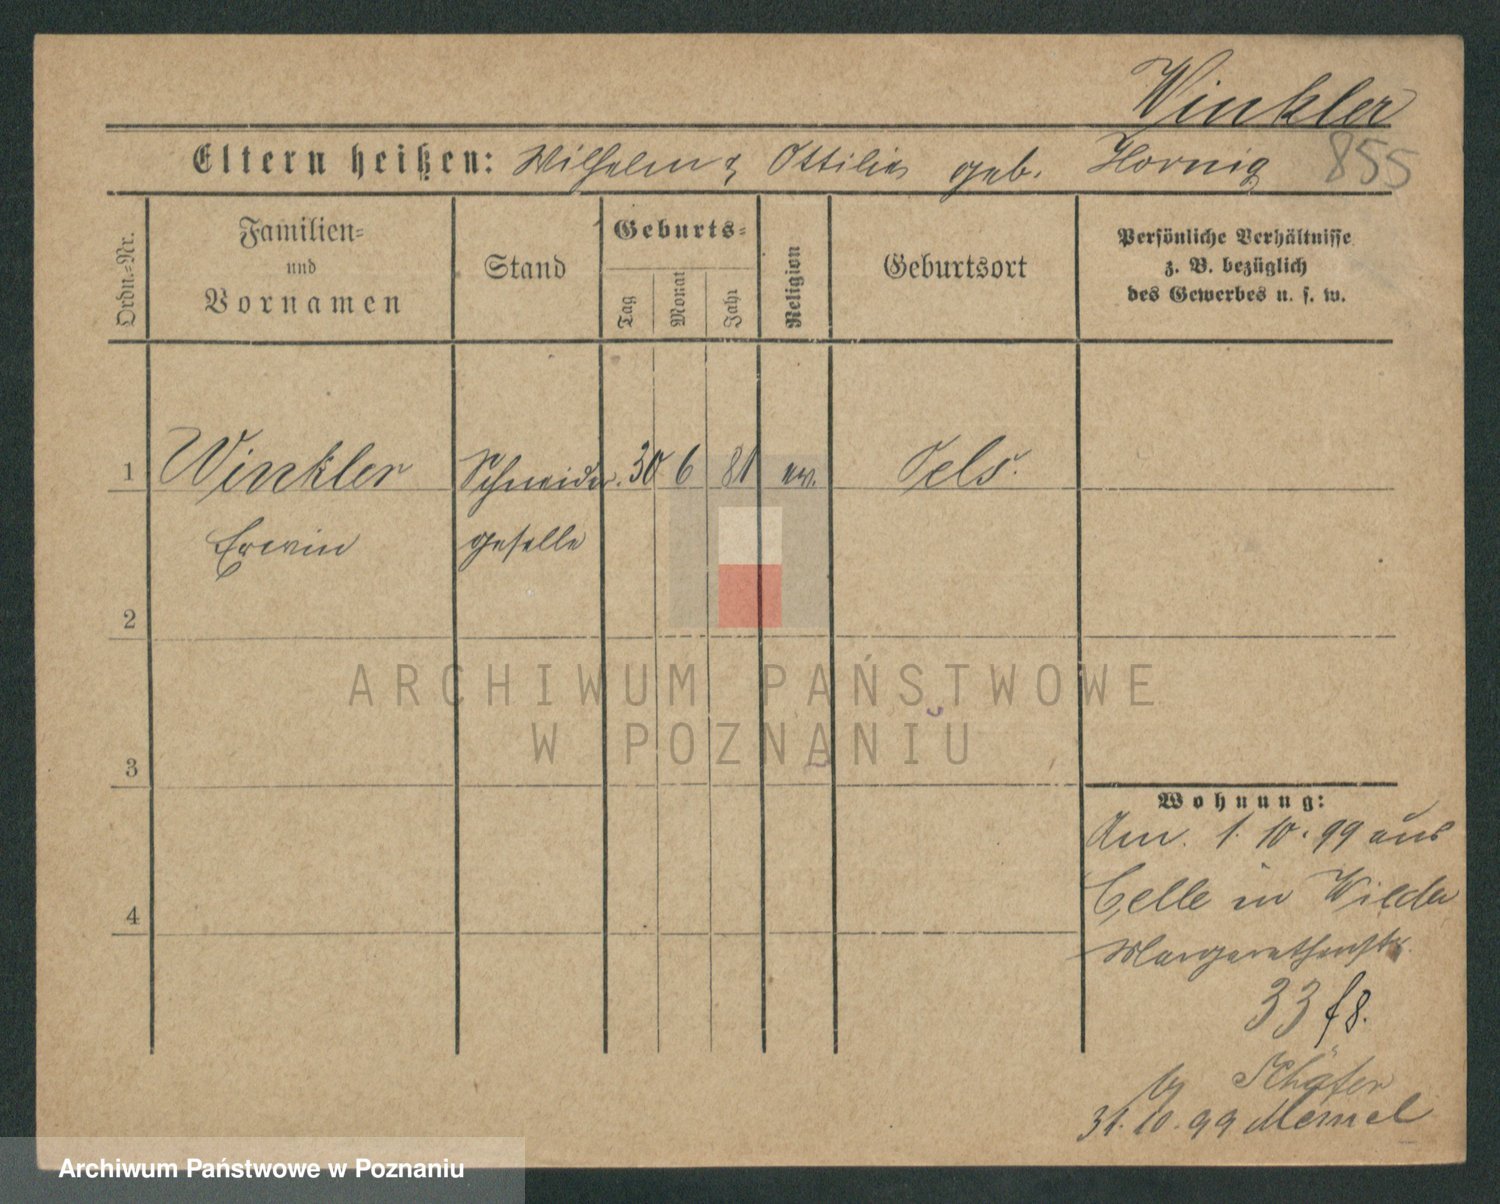 Winkler
Eltern heißen: Wilhelm & Ottilie geb. Hornig 855
Ordn.-Nr.
Familien-
und
Vornamen
Stand
Geburts-
Tag
Monat
Jahr
Religion
Geburtsort
Persönliche Verhältnisse
z. B. bezüglich
des Gewerbes u. s. w.
1 Winkler Schneider. 30 6 81 ev. Oels.
Erwin geselle
2
ARCHIWUM PAŃSTWOWE
W POZNANIU
3
Wohnung:
Am. 1. 10. 99 aus
Celle in Wilda
4
Margarethenstr.
33
Schäfer
31. 10. 99 Memel
Archiwum Państwowe w Poznaniu